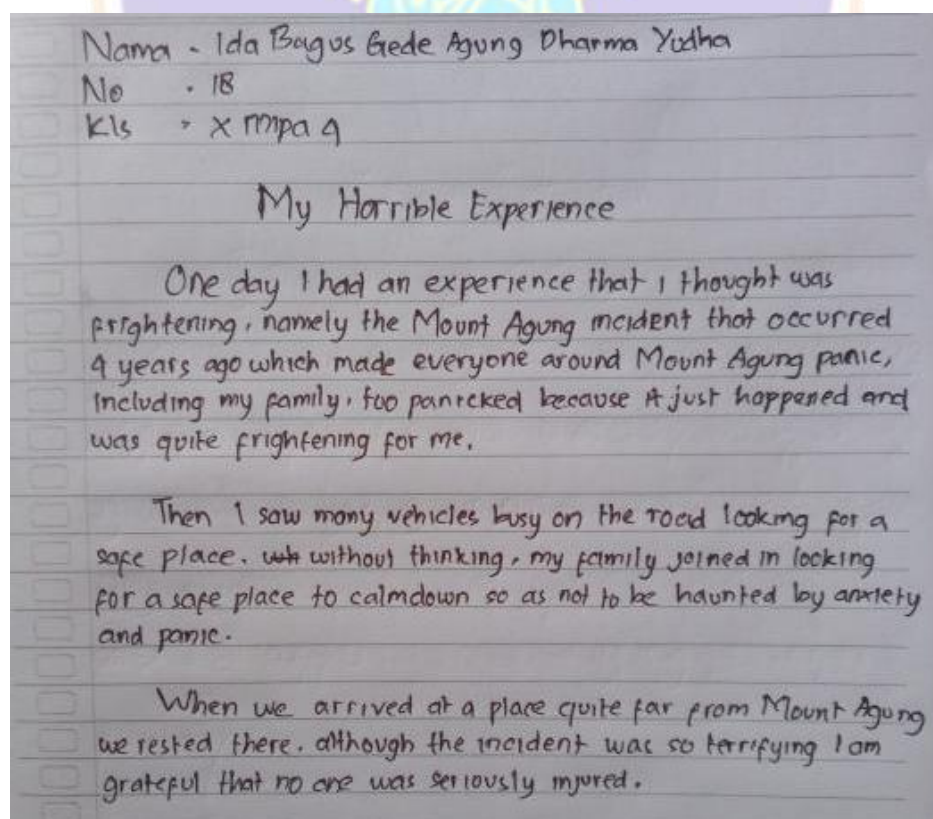 Nama - Ida Bagus Gede Agung Dharma Yudha
No . 18
Kls - X mipa 4
My Horrible Experience
One day I had an experience that I thought was
frightening, namely the Mount Agung incident that occurred
4 years ago which made everyone around Mount Agung panic,
including my family, too panicked because it just happened and
was quite frightening for me.
Then I saw many vehicles busy on the road looking for a
safe place. without thinking, my family joined in locking
for a safe place to calmdown so as not to be haunted by anxiety
and panic.
When we arrived at a place quite far from Mount Agung
we rested there. although the incident was so terrifying I am
grateful that no one was seriously injured.